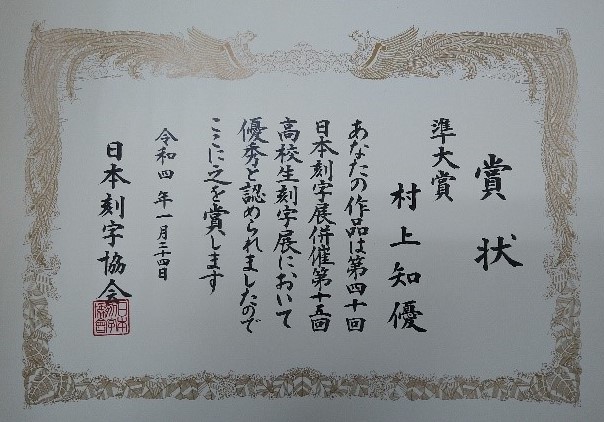 賞状
準大賞
村上知優
あなたの作品は第四十回
日本刻字展併催第十五回
高校生刻字展において
優秀と認められましたので
ここに之を賞します
令和四年一月二十四日
日本刻字協会